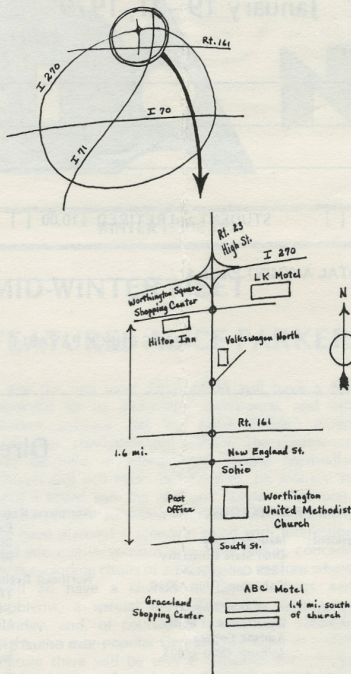 Rt. 161
I 270
I 70
I 71
Rt. 23
High St.
I 270
LK Motel
Worthington Square
Shopping Center
Hilton Inn
Volkswagen North
N
Rt. 161
1.6 mi.
New England St.
Sohio
Post
Office
Worthington
United Methodist
Church
South St.
ABC Motel
Graceland
Shopping Center
1.4 mi. south
of church